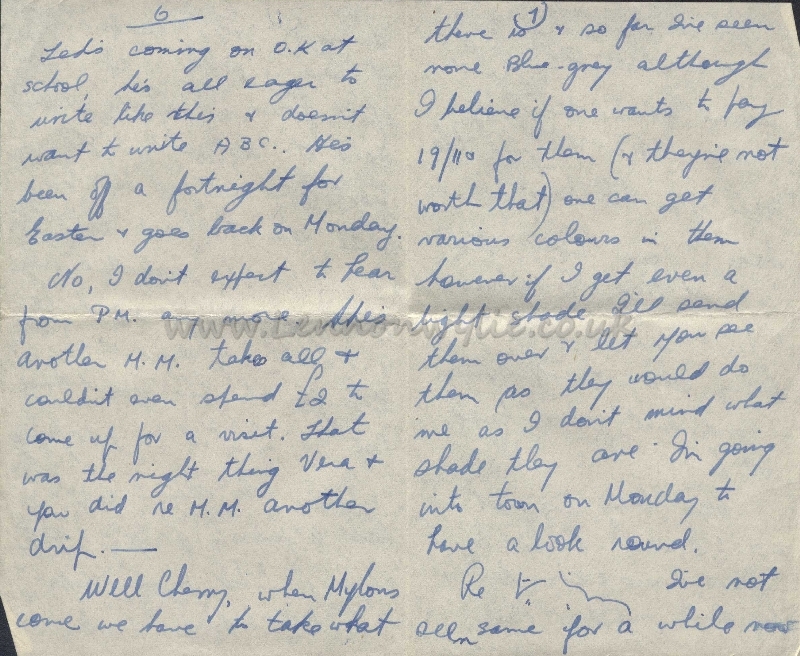 6
Ted's coming on O.K at
school, he's all eager to
write like this & doesn't
want to write ABC.. He's
been off a fortnight for
Easter & goes back on Monday.
No, I don't expect to hear
from P.M. any more, he's
another M.M. takes all &
couldn't even spend £2 to
come up for a visit. That
was the right thing Vera &
you did re M.M. another
drip. —
Well Cherry, when Nylons
come we have to take what
7)
there is & so far I've seen
none Blue-grey although
I believe if one wants to pay
19/11 for them (& they're not
worth that) one can get
various colours in them
however if I get even a
light shade I'll send
them over & let you see
them as they would do
me as I don't mind what
shade they are. I'm going
into town on Monday to
have a look round.
Re I've not
seen "same" for a while now
www.Lennonwylie.co.uk